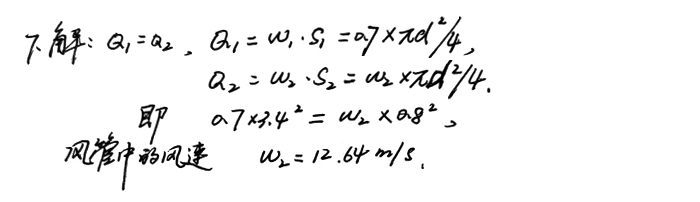 下解：Q₁=Q₂，Q₁=w₁·S₁=0.7×πd²/4，
Q₂=w₂·S₂=w₂×πd²/4.
即 0.7×3.4²=w₂×0.8²，
风管中的风速 w₂=12.64 m/s.